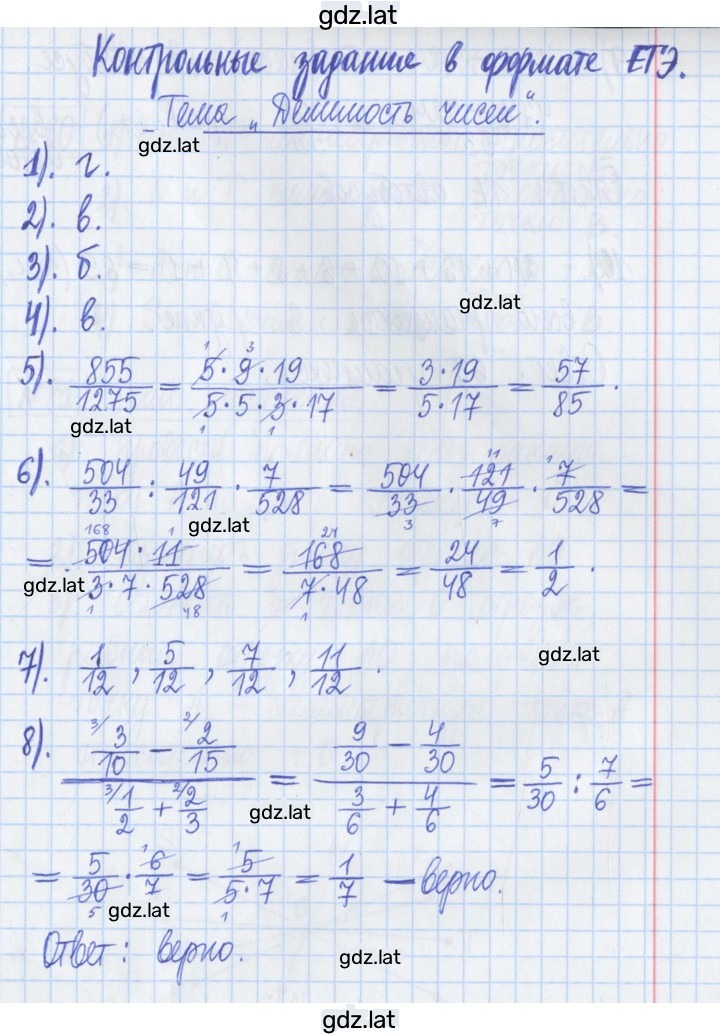 gdz.lat
Контрольные задание в формате ЕГЭ.
Тема „Делимость чисел“.
gdz.lat
1). г.
2). в.
3). б.
gdz.lat
4). в.
5). 855/1275 = 5·9·19/5·5·3·17 = 3·19/5·17 = 57/85.
gdz.lat
6). 504/33 : 49/121 · 7/528 = 504/33 · 121/49 · 7/528 =
gdz.lat
= 504·11/3·7·528 = 168/7·48 = 24/48 = 1/2.
gdz.lat
7). 1/12, 5/12, 7/12, 11/12.
gdz.lat
8). (3/10 − 2/15)/(1/2 + 2/3) = (9/30 − 4/30)/(3/6 + 4/6) = 5/30 : 7/6 =
gdz.lat
= 5/30 · 6/7 = 5/5·7 = 1/7 — верно.
gdz.lat
Ответ: верно.
gdz.lat
gdz.lat